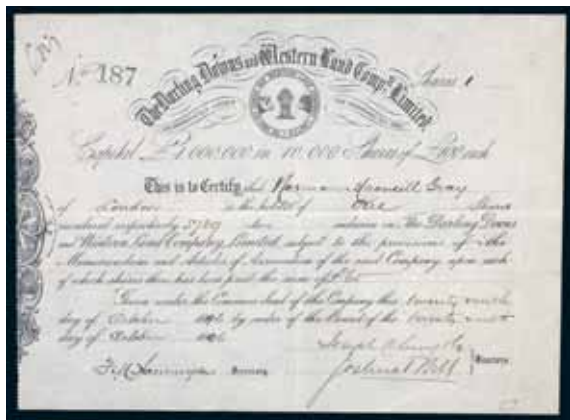 No 187
Shares 1
The Darling Downs and Western Land Compy. Limited.
Capital £1,000,000 in 10,000 Shares of £100 each
This is to Certify that Norman Gray
of London is the holder of One Shares
numbered respectively inclusive in The Darling Downs
and Western Land Company Limited, subject to the provisions of the
Memorandum and Articles of Association of the said Company upon each
of which shares there has been paid the sum of
Given under the Common Seal of the Company this twenty
day of October by order of the Board of the twenty
day of October
Secretary
Joshua P Bell